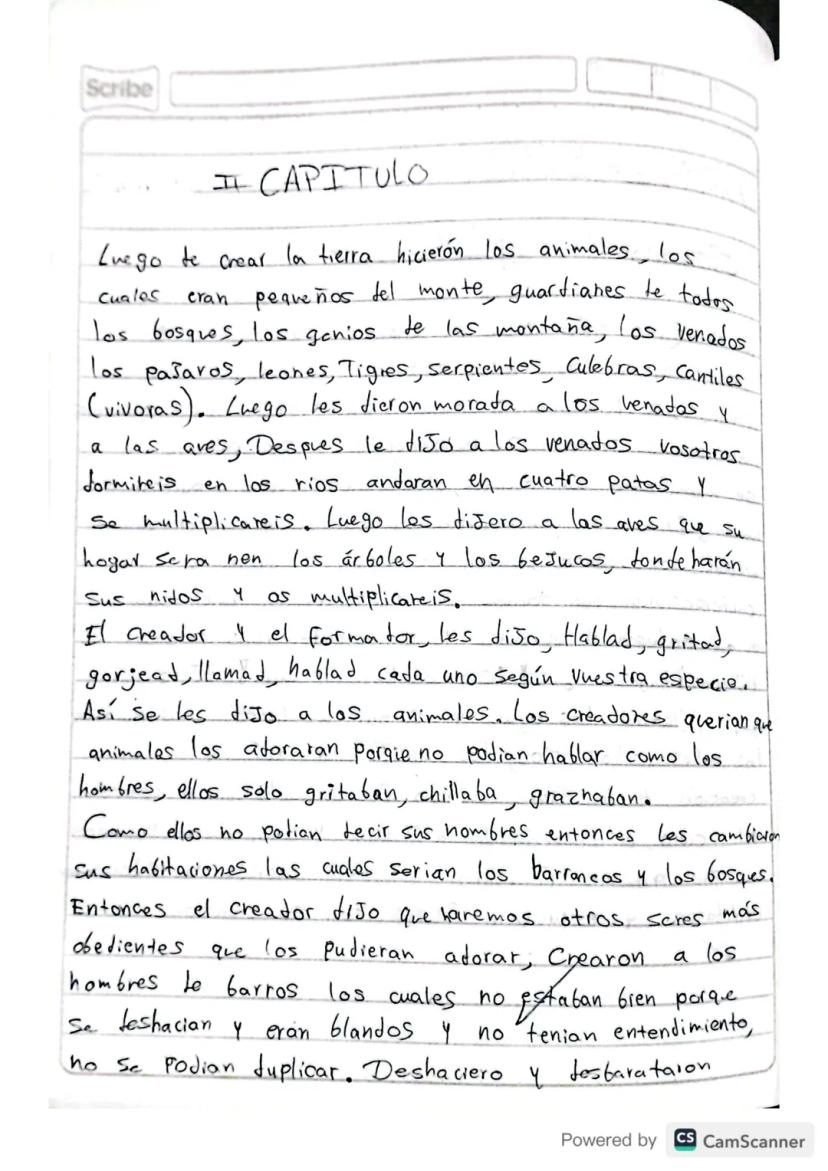 Scribe
II CAPITULO
Luego de crear la tierra hicierón los animales, los
cuales eran pequeños del monte, guardianes de todos
los bosques, los genios de las montaña, los venados
los paJaros, leones, Tigres, serpientes, Culebras, Cantiles
(vivoras). Luego les dieron morada a los venados y
a las aves, Despues le diJo a los venados vosotros
dormireis en los rios andaran en cuatro patas y
se multiplicareis. Luego les diJero a las aves que su
hogar sera nen los árboles y los beJucos, donde harán
sus nidos y os multiplicareis.
El creador y el formador, les diJo, Hablad, gritad,
gorjead, llamad, hablad cada uno según vuestra especie.
Así se les diJo a los animales. Los creadores querian que
animales los adoraran porqie no podian hablar como los
hombres, ellos solo gritaban, chillaba, graznaban.
Como ellos no podian decir sus nombres entonces les cambiaron
sus habitaciones las cuales serian los barrancos y los bosques.
Entonces el creador diJo que haremos otros seres más
obedientes que los pudieran adorar, Crearon a los
hombres de barros los cuales no estaban bien porque
se deshacian y eran blandos y no tenian entendimiento,
no se podian duplicar. Deshaciero y desbarataron
Powered by CS CamScanner